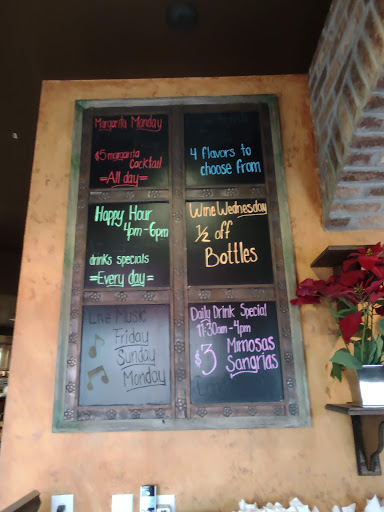 Margarita Monday
$5 margarita
cocktail
=All day=
4 flavors to
choose from
Happy Hour
4pm-6pm
drinks specials
=Every day=
Wine Wednesday
1/2 off
Bottles
Live Music
Friday
Sunday
Monday
Daily Drink Special
11:30am-4pm
$3 Mimosas
Sangrias